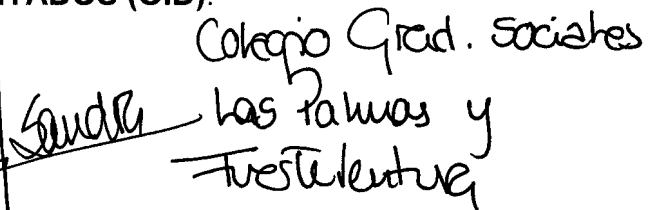 ITADOS (C.D).
Colegio Grad. Sociales
Sandra Las Palmas y
Fuerteventura